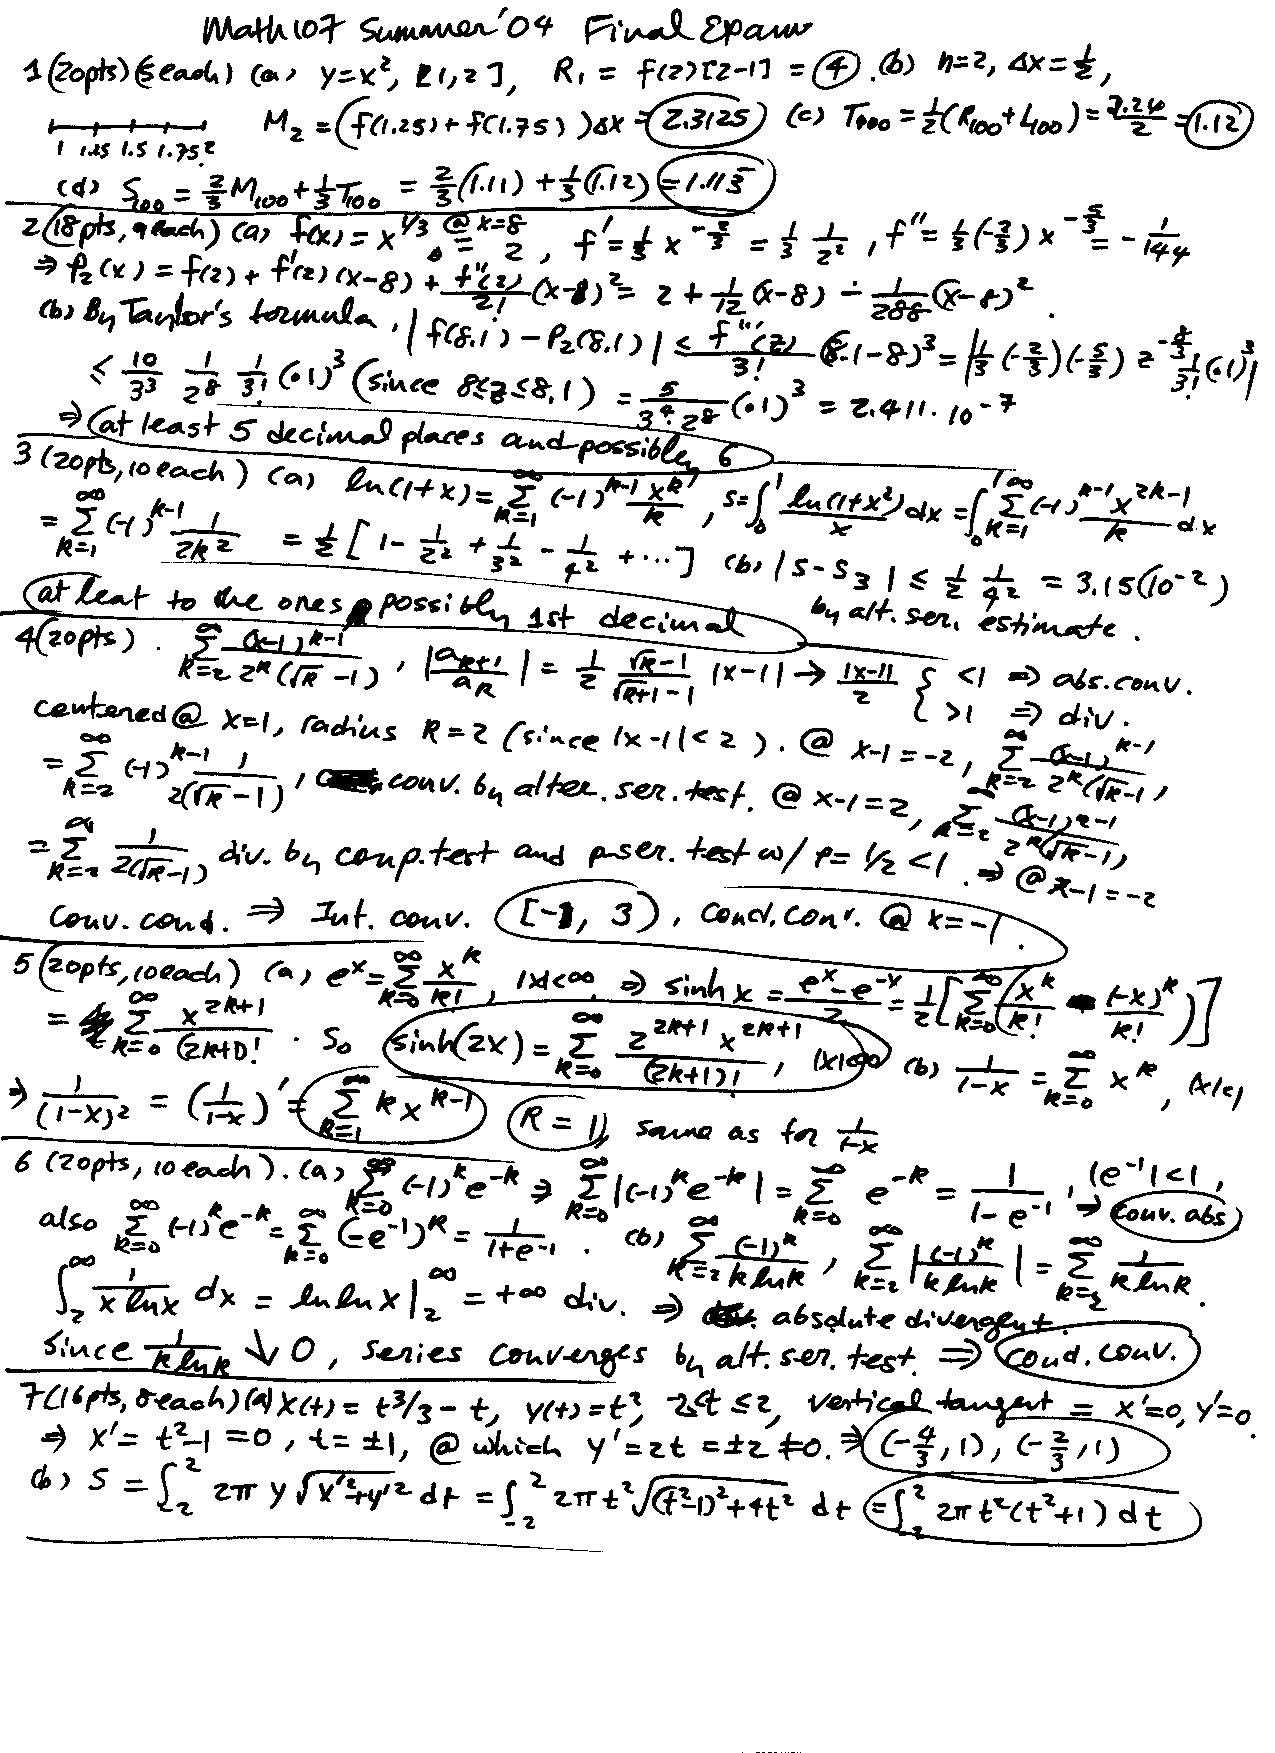 Math 107 Summer '04 Final Exam
1 (20pts) (5 each) (a) y=x², [1,2], R₁ = f(2)[2-1] = 4. (b) n=2, Δx=½,
M₂ = (f(1.25)+f(1.75))Δx = 2.3125 (c) T₁₀₀ = ½(R₁₀₀+L₁₀₀) = 2.24/2 = 1.12
1 1.25 1.5 1.75 2
(d) S₁₀₀ = ⅔M₁₀₀ + ⅓T₁₀₀ = ⅔(1.11) + ⅓(1.12) = 1.113
2 (18pts, 9 each) (a) f(x) = x^{1/3} @ x=8 = 2, f' = ⅓ x^{-2/3} = ⅓ 1/2², f'' = ⅓(-⅔) x^{-5/3} = -1/144
⇒ P₂(x) = f(2) + f'(2)(x-8) + f''(2)/2! (x-8)² = 2 + 1/12 (x-8) - 1/288 (x-8)².
(b) By Taylor's formula, |f(8.1) - P₂(8.1)| ≤ f'''(z)/3! (8.1-8)³ = |⅓(-⅔)(-5/3) z^{-8/3} 1/3! (.1)³|
≤ 10/3³ 1/2⁸ 1/3! (.1)³ (since 8≤z≤8.1) = 5/(3⁴·2⁸) (.1)³ = 2.411·10⁻⁷
⇒ (at least 5 decimal places and possibly 6
3 (20pts, 10 each) (a) ln(1+x) = Σ_{k=1}^∞ (-1)^{k-1} x^k/k, S = ∫₀¹ ln(1+x²)/x dx = ∫₀¹ Σ_{k=1}^∞ (-1)^{k-1} x^{2k-1}/k dx
= Σ_{k=1}^∞ (-1)^{k-1} 1/(2k²) = ½[1 - 1/2² + 1/3² - 1/4² + ...] (b) |S-S₃| ≤ ½ 1/4² = 3.15(10⁻²)
at leat to the ones possibly 1st decimal by alt. ser. estimate.
4 (20pts). Σ_{k=2}^∞ (x-1)^{k-1}/(2^k(√k-1)), |a_{k+1}/a_k| = ½ (√k-1)/(√k+1-1) |x-1| → |x-1|/2 { <1 ⇒ abs. conv.
>1 ⇒ div.
centered @ x=1, radius R=2 (since |x-1|<2). @ x-1=-2, Σ_{k=2}^∞ (x-1)^{k-1}/(2^k(√k-1)),
= Σ_{k=2}^∞ (-1)^{k-1} 1/(2(√k-1)), conv. by alter. ser. test. @ x-1=2, Σ_{k=2}^∞ (x-1)^{k-1}/(2^k(√k-1)),
= Σ_{k=2}^∞ 1/(2(√k-1)) div. by comp. test and p-ser. test w/ p=1/2 <1. ⇒ @ x-1=-2
conv. cond. ⇒ Int. conv. [-1, 3), cond. conv. @ x=-1.
5 (20pts, 10 each) (a) e^x = Σ_{k=0}^∞ x^k/k!, |x|<∞, ⇒ sinh x = (e^x - e^{-x})/2 = ½[Σ_{k=0}^∞ (x^k/k! - (-x)^k/k!)]
= Σ_{k=0}^∞ x^{2k+1}/(2k+1)!. So sinh(2x) = Σ_{k=0}^∞ 2^{2k+1} x^{2k+1}/(2k+1)!, |x|<∞ (b) 1/(1-x) = Σ_{k=0}^∞ x^k, |x|<1
⇒ 1/(1-x)² = (1/(1-x))' = Σ_{k=1}^∞ k x^{k-1} (R=1), same as for 1/(1-x)
6 (20pts, 10 each). (a) Σ_{k=0}^∞ (-1)^k e^{-k} ⇒ Σ_{k=0}^∞ |(-1)^k e^{-k}| = Σ_{k=0}^∞ e^{-k} = 1/(1-e⁻¹), |e⁻¹|<1,
also Σ_{k=0}^∞ (-1)^k e^{-k} = Σ_{k=0}^∞ (-e⁻¹)^k = 1/(1+e⁻¹). ⇒ conv. abs
(b) Σ_{k=2}^∞ (-1)^k/(k ln k), Σ_{k=2}^∞ |(-1)^k/(k ln k)| = Σ_{k=2}^∞ 1/(k ln k).
∫₂^∞ 1/(x ln x) dx = ln ln x |₂^∞ = +∞ div. ⇒ absolute divergent.
Since 1/(k ln k) ↓ 0, series converges by alt. ser. test. ⇒ cond. conv.
7 (16pts, 8 each) (a) x(t) = t³/3 - t, y(t) = t², -2≤t≤2, vertical tangent = x'=0, y'≠0.
⇒ x' = t²-1 = 0, t=±1, @ which y' = 2t = ±2 ≠ 0. ⇒ (-4/3, 1), (-2/3, 1)
(b) S = ∫_{-2}^2 2π y √(x'²+y'²) dt = ∫_{-2}^2 2π t² √((t²-1)²+4t²) dt = ∫_{-2}^2 2π t²(t²+1) dt